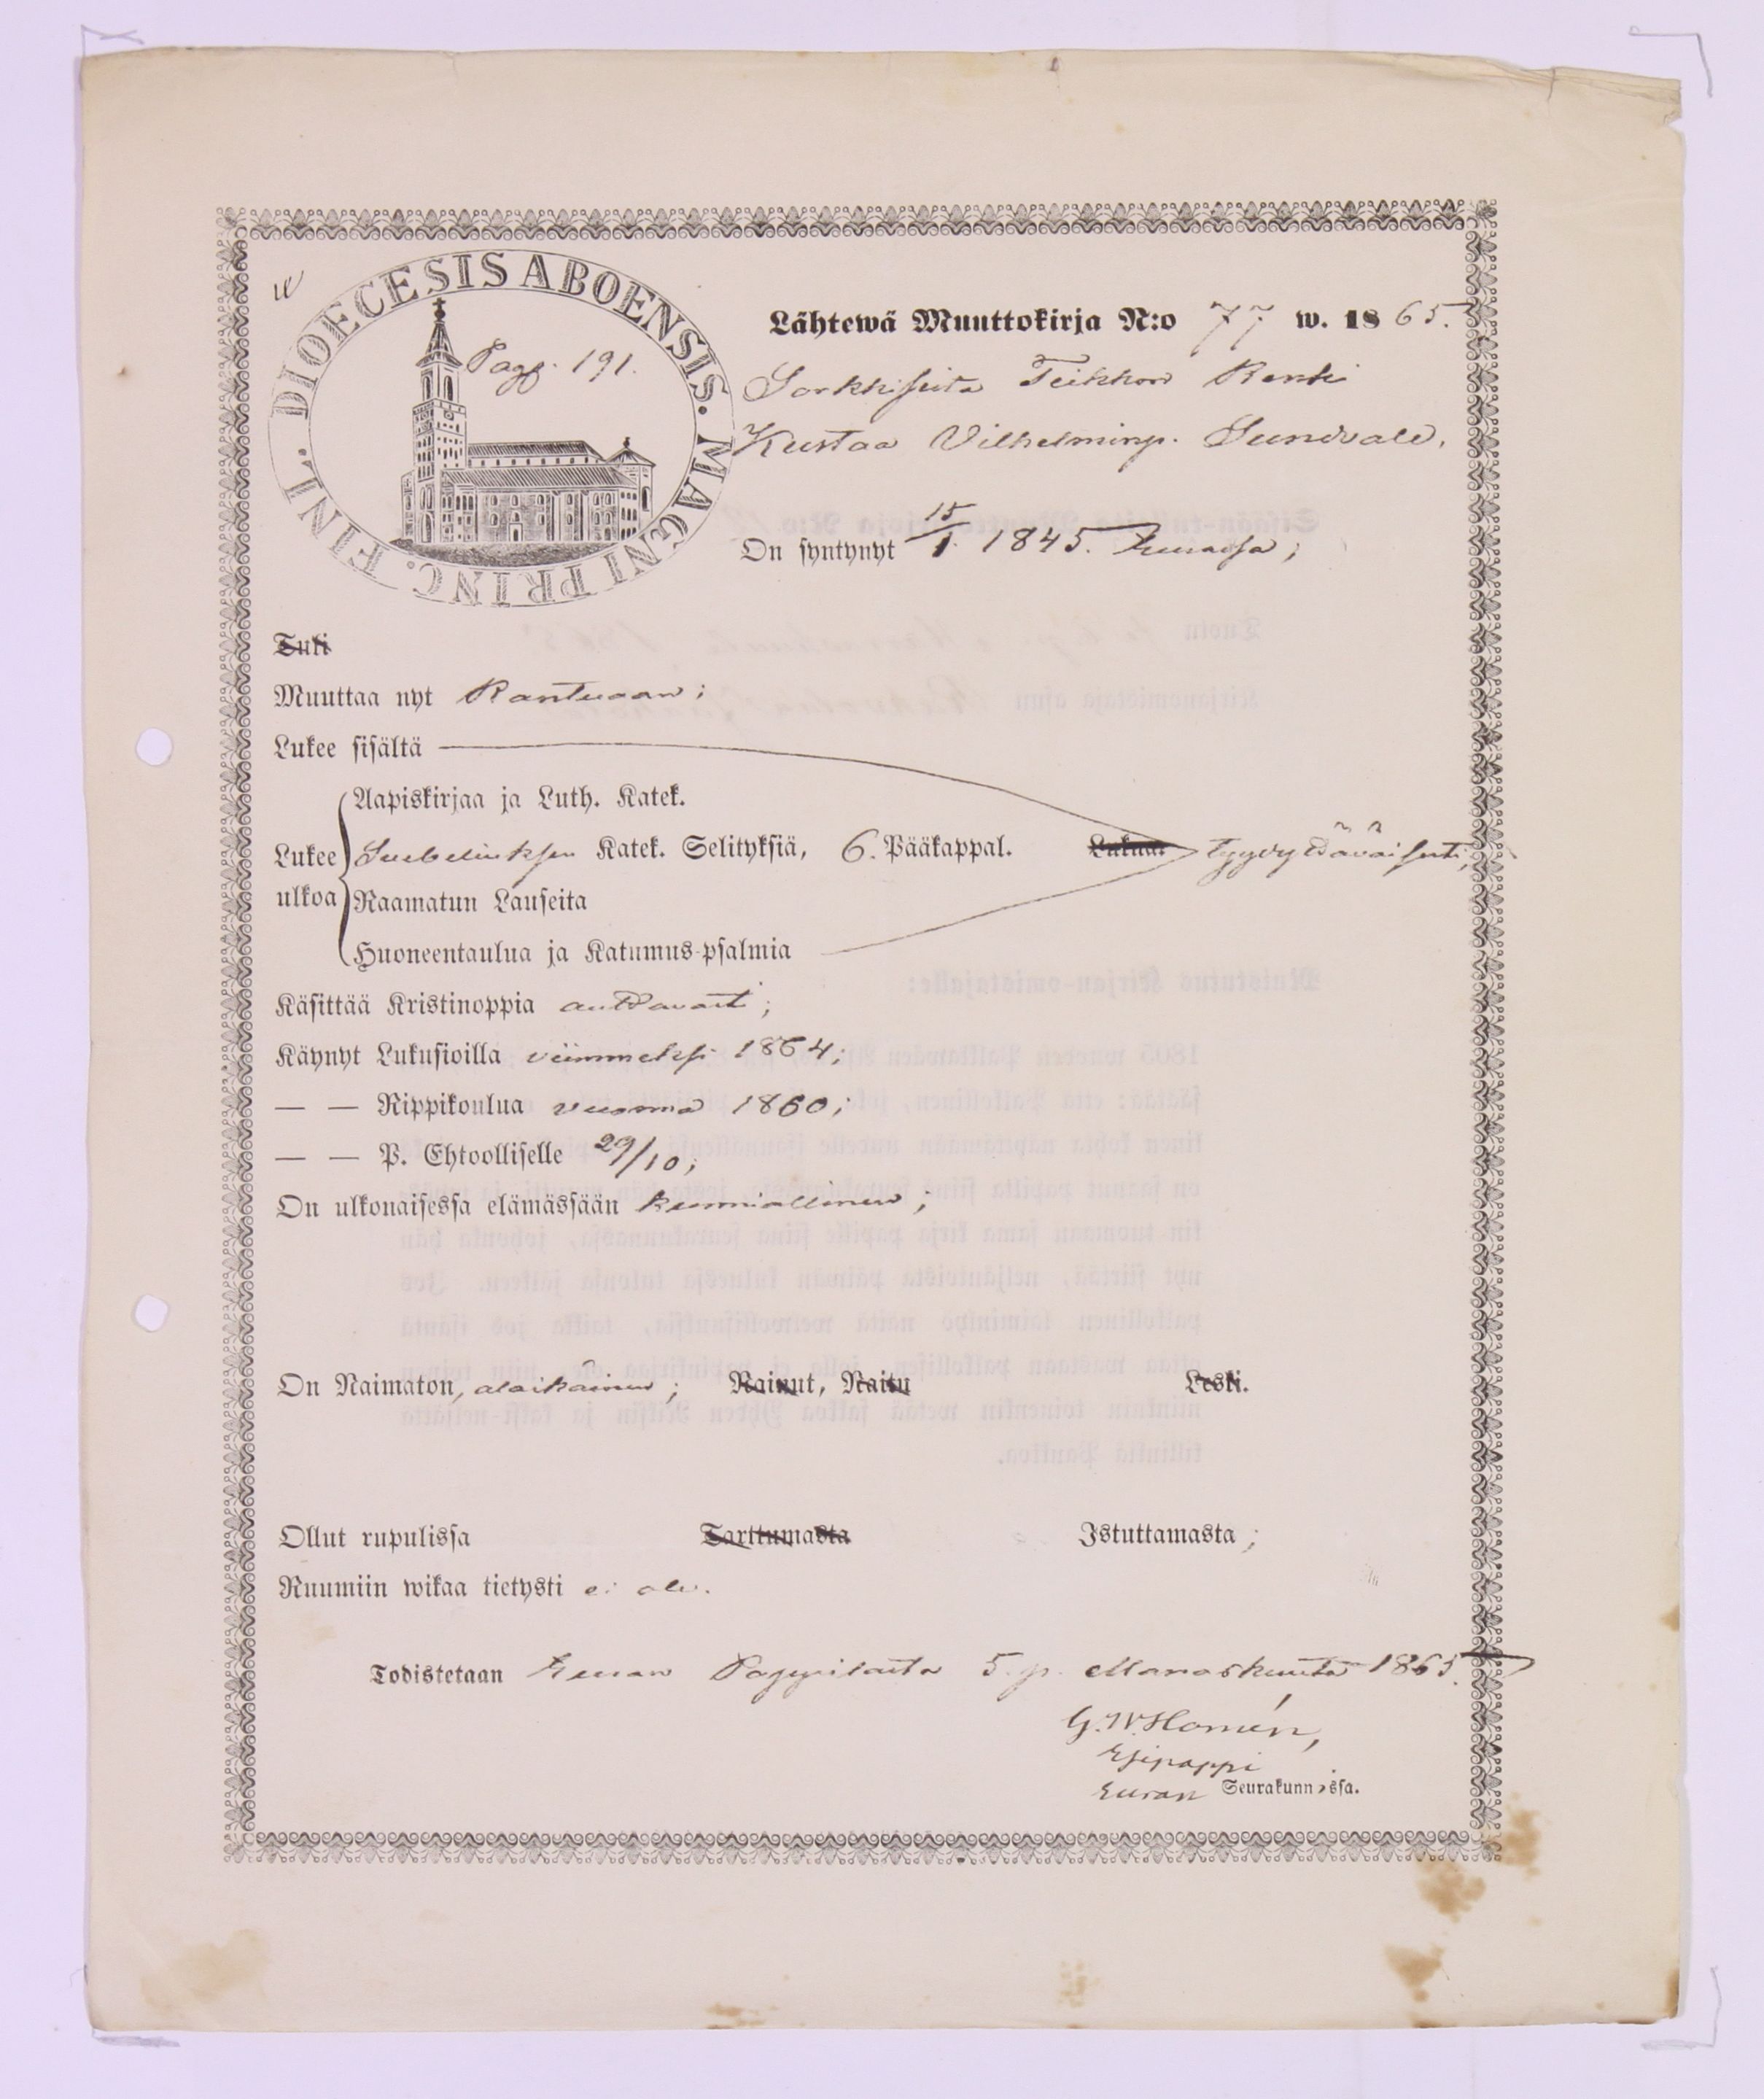 w
DIOECESIS ABOENSIS. MAGNI PRINC. FINL.
Pag. 191.
Lähtewä Muuttokirja N:o 77 w. 1865.
Sorkkisista Teikkon Renki
Kustaa Vilhelminp. Sundvall,
On syntynyt 15/1. 1845. Eurassa;
Tuli
Muuttaa nyt Kantvaan;
Lukee sisältä
Aapiskirjaa ja Luth. Katek.
Lukee ulkoa Svebeliuksen Katek. Selityksiä, 6. Pääkappal. Lukua. tyydyttäväisesti;
Raamatun Lauseita
Huoneentaulua ja Katumus-psalmia
Käsittää Kristinoppia auttavasti;
Käynyt Lukusioilla viimmeksi 1864;
— — Rippikoulua vuonna 1860;
— — P. Ehtoolliselle 29/10;
On ulkonaisessa elämässään kunniallinen;
On Naimaton, alaikäinen; Nainut, Naitu Leski.
Ollut rupulissa Tarttumasta Istuttamasta;
Ruumiin wikaa tietysti ei ole.
Todistetaan Euran Pappilasta 5. p. Marraskuuta 1865.
G. W. Homén,
Esipappi
Euran Seurakunnassa.